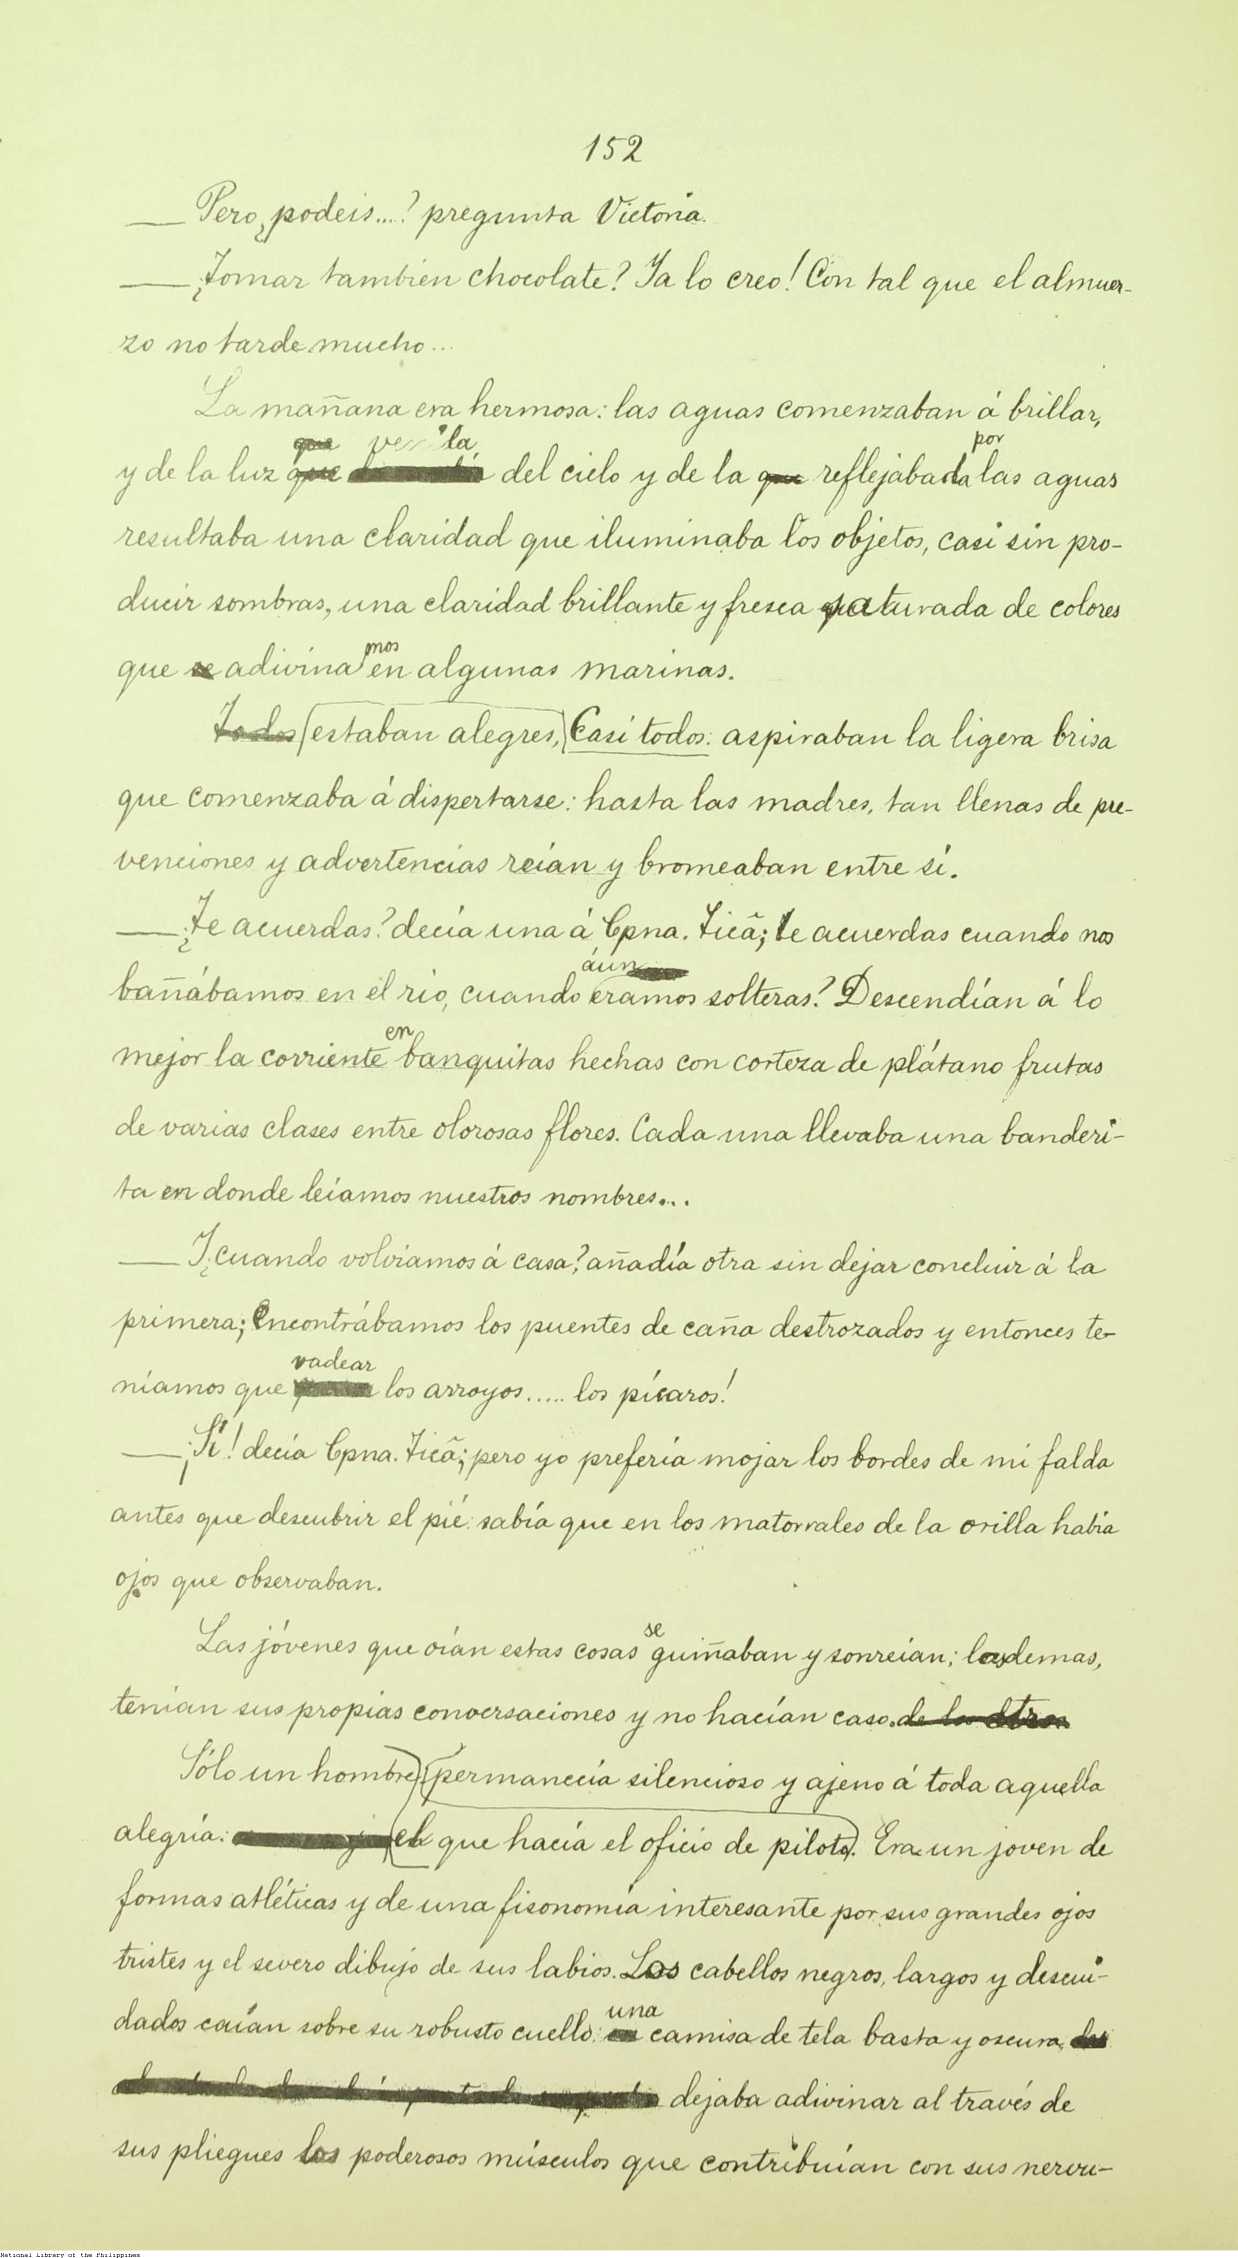 152
— Pero ¿podeis...? pregunta Victoria.
— ¿Tomar también chocolate? Ya lo creo! Con tal que el almuer-
zo no tarde mucho...
La mañana era hermosa: las aguas comenzaban á brillar,
que venía la por
y de la luz que del cielo y de la que reflejada las aguas
resultaba una claridad que iluminaba los objetos, casi sin pro-
ducir sombras, una claridad brillante y fresca saturada de colores
mos
que se adivina en algunas marinas.
Todos estaban alegres, Casi todos: aspiraban la ligera brisa
que comenzaba á dispertarse: hasta las madres, tan llenas de pre-
venciones y advertencias reían y bromeaban entre sí.
— ¿Te acuerdas? decía una á Cpna. Ticã; te acuerdas cuando nos
aún
bañábamos en el río, cuando eramos solteras? Descendían á lo
en
mejor la corriente banquitas hechas con corteza de plátano frutas
de varias clases entre olorosas flores. Cada una llevaba una banderi-
ta en donde leíamos nuestros nombres...
— Y ¿cuando volvíamos á casa? añadía otra sin dejar concluir á la
primera; encontrábamos los puentes de caña destrozados y entonces te-
vadear
níamos que los arroyos..... los pícaros!
— ¡Sí! decía Cpna. Ticã; pero yo prefería mojar los bordes de mi falda
antes que descubrir el pié: sabía que en los matorrales de la orilla había
ojos que observaban.
se
Las jóvenes que oían estas cosas guiñaban y sonreían; las demas,
tenían sus propias conversaciones y no hacían caso. de los otros
Sólo un hombre, permanecía silencioso y ajeno á toda aquella
alegría: el que hacía el oficio de piloto. Era un joven de
formas atléticas y de una fisonomía interesante por sus grandes ojos
tristes y el severo dibujo de sus labios. Los cabellos negros, largos y descui-
una
dados caían sobre su robusto cuello: camisa de tela basta y oscura,
dejaba adivinar al través de
sus pliegues los poderosos músculos que contribuían con sus nervu-
National Library of the Philippines